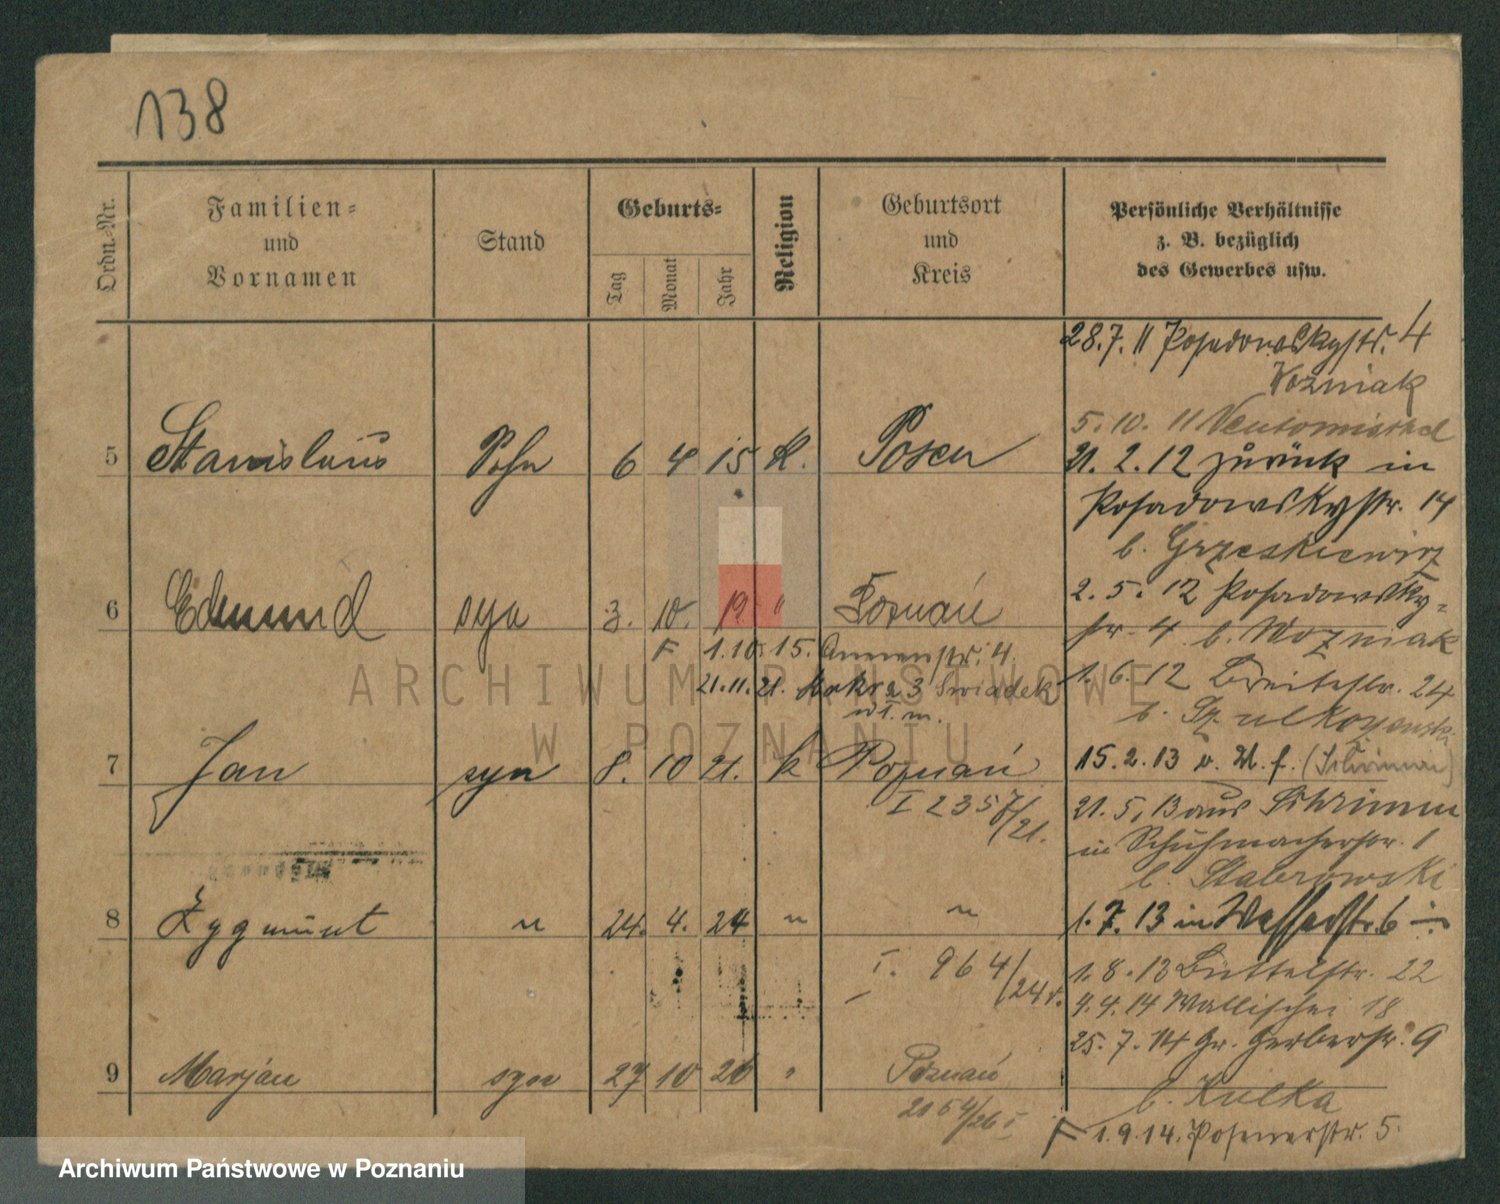 138
Ordn.-Nr.
Familien-
und
Vornamen
Stand
Geburts-
Tag
Monat
Jahr
Religion
Geburtsort
und
Kreis
Persönliche Verhältnisse
z. B. bezüglich
des Gewerbes usw.
5 Stanislaus Sohn 6 4 15 K. Posen
6 Edmund syn 3. 10. 19 " Poznań
F 1.10.15. Annenstr. 4
21.11.21. 3 Swiadek
w. m.
7 Jan syn 8. 10 21. k Poznań
I 2357/21.
8 Zygmunt " 24. 4. 24 " "
I. 964/24
9 Marjan syn 27 10 26 " Poznań
2154/26 I
28.7.11 Posadowskystr. 4
Wozniak
5.10.11
21.2.12 zurück in
Posadowskystr. 14
b. Grzeskiewicz
2.5.12 Posadowsky-
str. 4 b. Wozniak
1.6.12 Breitestr. 24
b.
15.2.13 v. U. f. (Schrimm)
21.5.13 aus Schrimm
in Schuhmacherstr. 1
b. Stabrowski
1.7.13 in Wasserstr. 6
1.8.13 Büttelstr. 22
4.4.14 Wallischei 18
25.7.14 Gr. Gerberstr. 9
b. Kulka
F 1.9.14. Posenerstr. 5.
ARCHIWUM PAŃSTWOWE
W POZNANIU
Archiwum Państwowe w Poznaniu